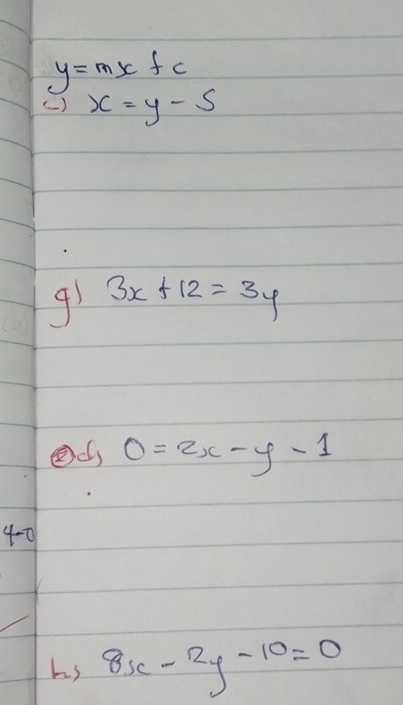 y = mx + c
c) x = y - 5
g) 3x + 12 = 3y
d) 0 = 2x - y - 1
h) 8x - 2y - 10 = 0